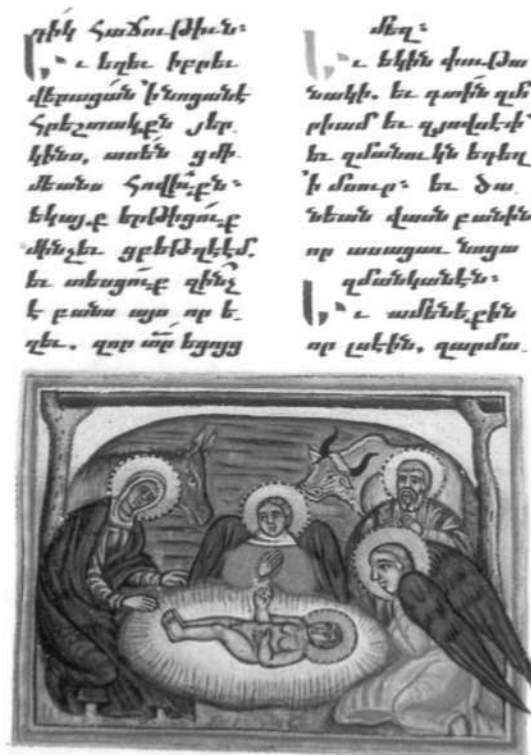 դիկ հաճութիւն։
Եւ եղեւ իբրեւ
վերացան ՚ի նոցանէ
հրեշտակքն յեր
կինս. ասեն ցմի
մեանս հովիւքն։
եկայք երթիցուք
մինչեւ ցբեթղէէմ.
եւ տեսցուք զինչ
է բանս այս որ ե
ղեւ. զոր տր եցոյց
մեզ։
Եւ եկին փութա
նակի. եւ գտին զմ
րիամ եւ զյովսէփ
եւ զմանուկն եդեղ
՚ի մսուր։ եւ ծա
նեան վասն բանին
որ ասացաւ նոցա
զմանկանէն։
Եւ ամենեքին
որ լսէին. զարմա